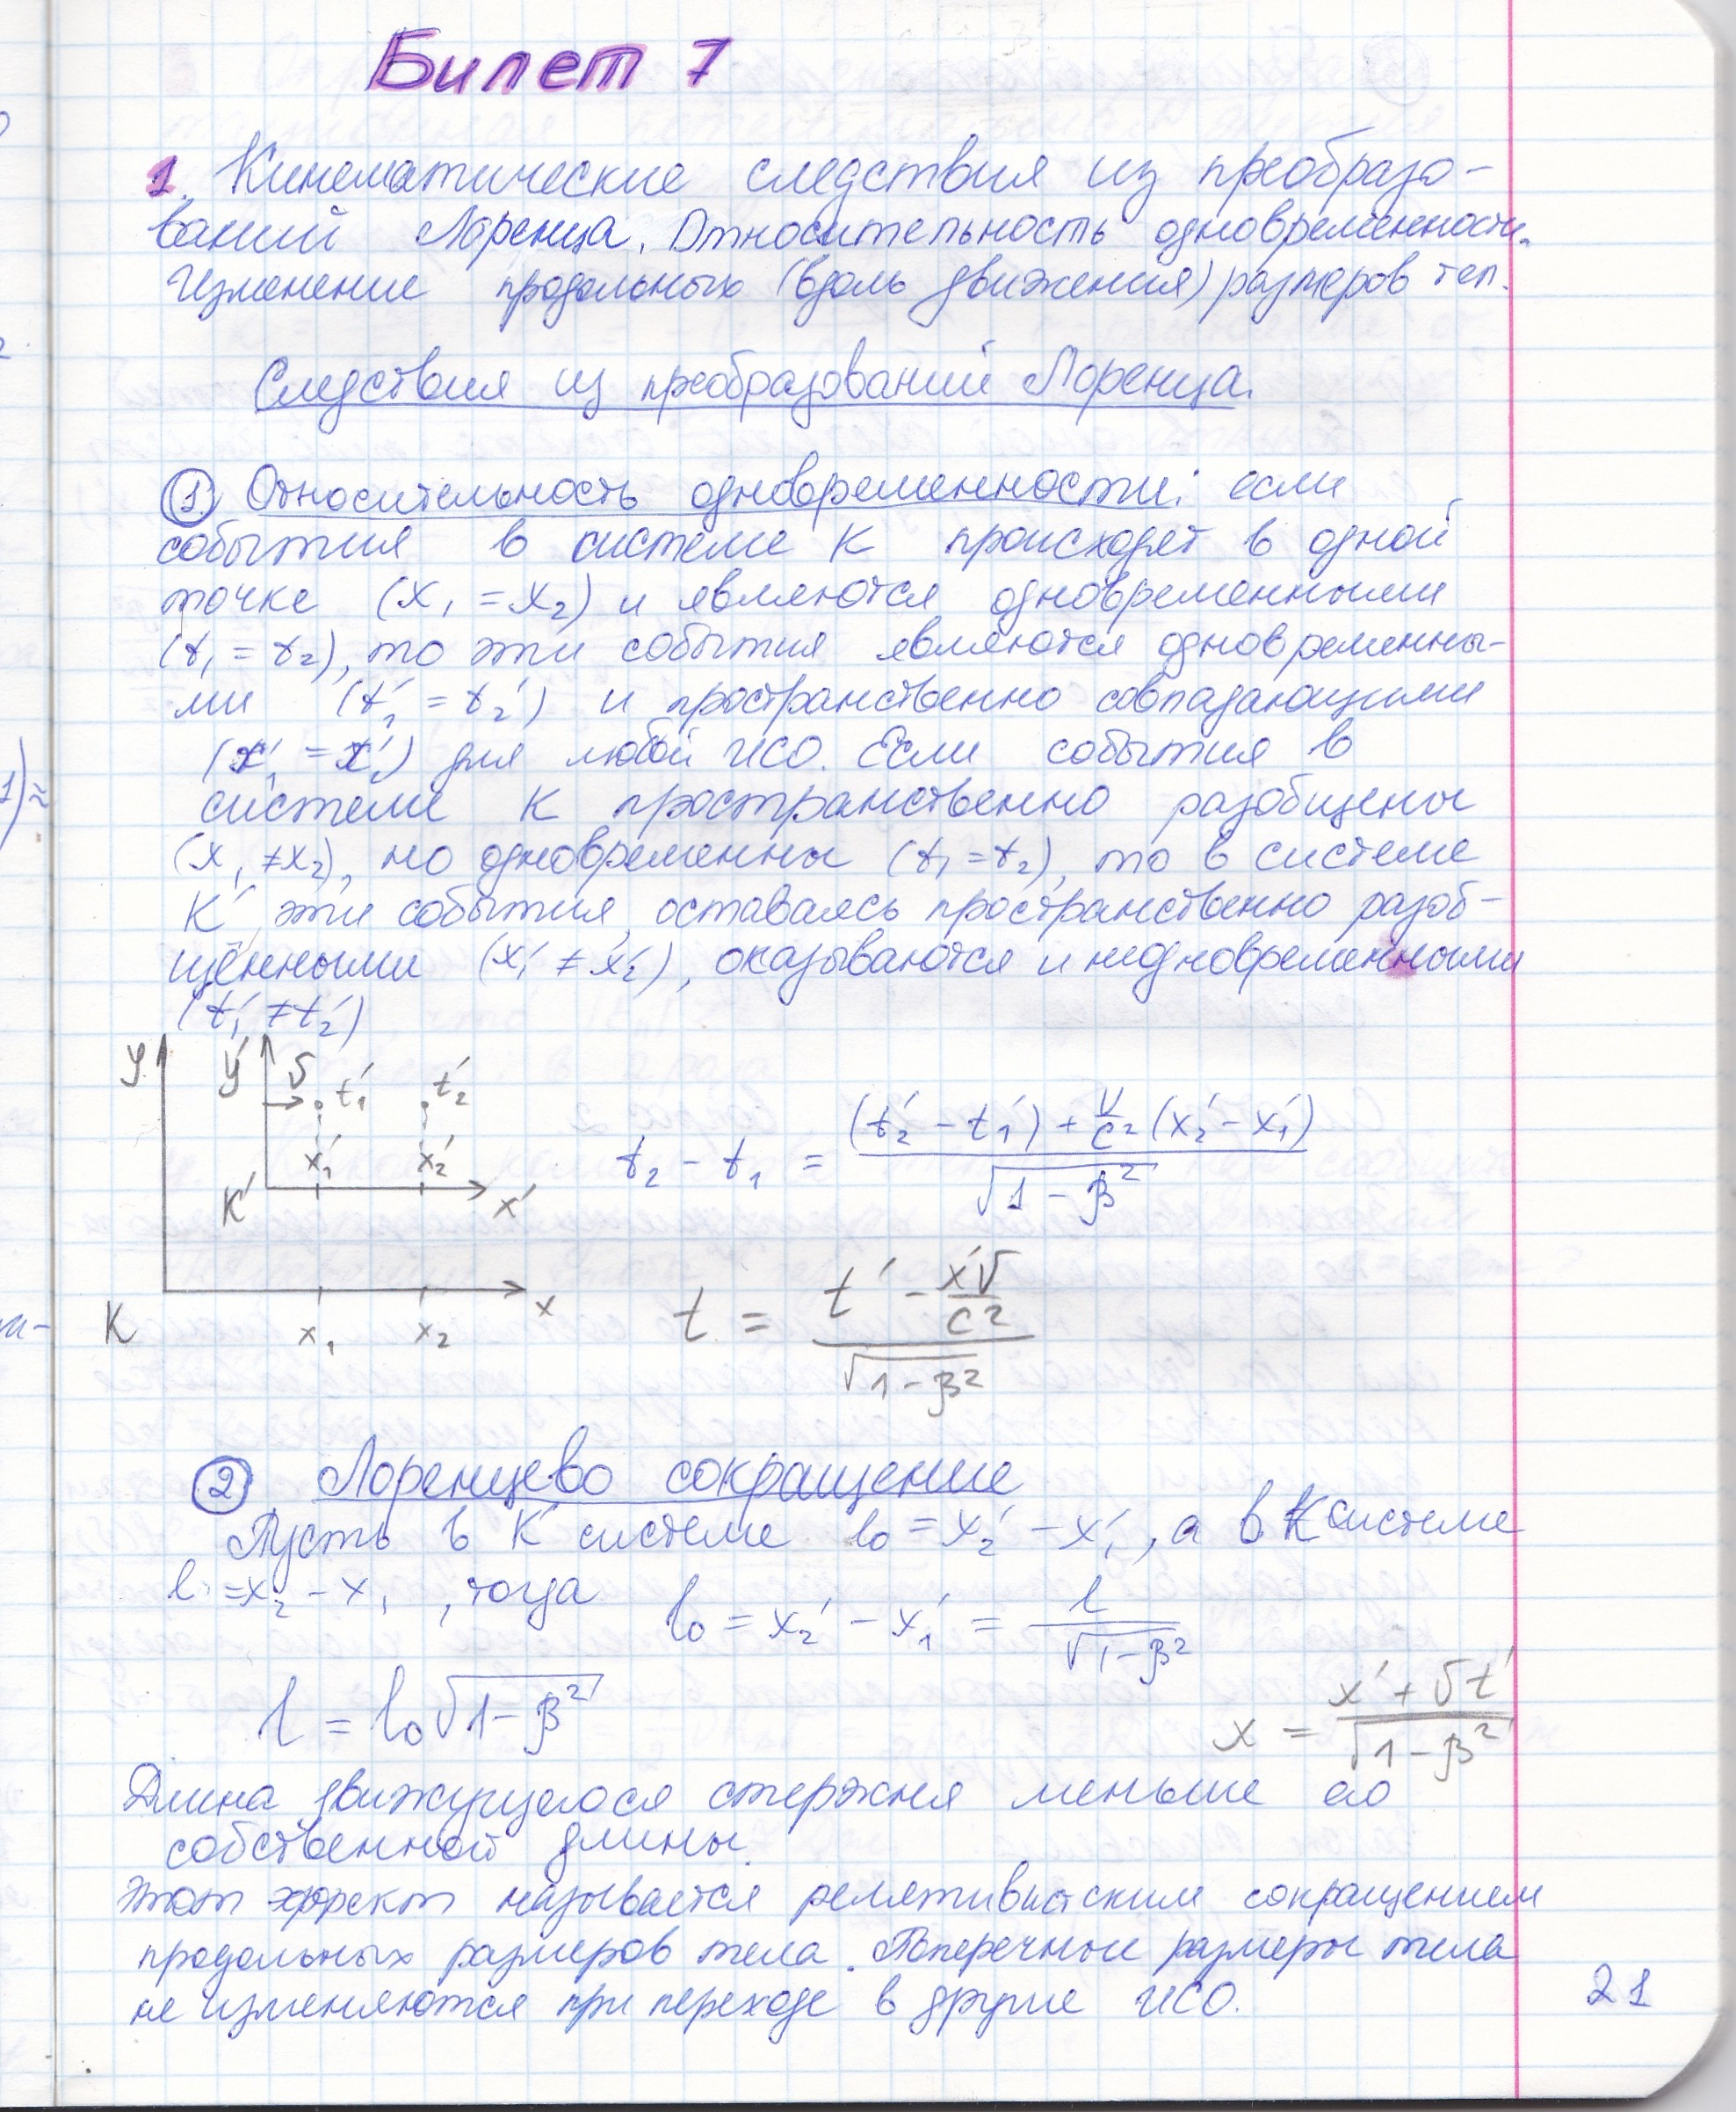 Билет 7
1. Кинематические следствия из преобразо-
ваний Лоренца. Относительность одновременности.
Изменение продольных (вдоль движения) размеров тел.
Следствия из преобразований Лоренца.
1. Относительность одновременности: если
события в системе К происходят в одной
точке (x₁ = x₂) и являются одновременными
(t₁ = t₂), то эти события являются одновременны-
ми (t₁′ = t₂′) и пространственно совпадающими
(x₁′ = x₁′) для любой ИСО. Если события в
системе К пространственно разобщены
(x₁ ≠ x₂), но одновременны (t₁ = t₂), то в системе
К′ эти события, оставаясь пространственно разоб-
щёнными (x₁′ ≠ x₂′), оказываются и неодновременными
(t₁′ ≠ t₂′)
y y′ v t₁′ t₂′
x₁′ x₂′
K′ x′
K x
x₁ x₂
t₂ − t₁ = ((t₂′ − t₁′) + v/c² (x₂′ − x₁′)) / √(1 − β²)
t = (t′ − x′v/c²) / √(1 − β²)
2 Лоренцево сокращение
Пусть в К′ системе l₀ = x₂′ − x₁′, а в К системе
l = x₂ − x₁, тогда l₀ = x₂′ − x₁′ = l / √(1 − β²)
l = l₀ √(1 − β²)
x = (x′ + vt′) / √(1 − β²)
Длина движущегося стержня меньше его
собственной длины.
Этот эффект называется релятивистским сокращением
продольных размеров тела. Поперечные размеры тела
не изменяются при переходе в другие ИСО.
21